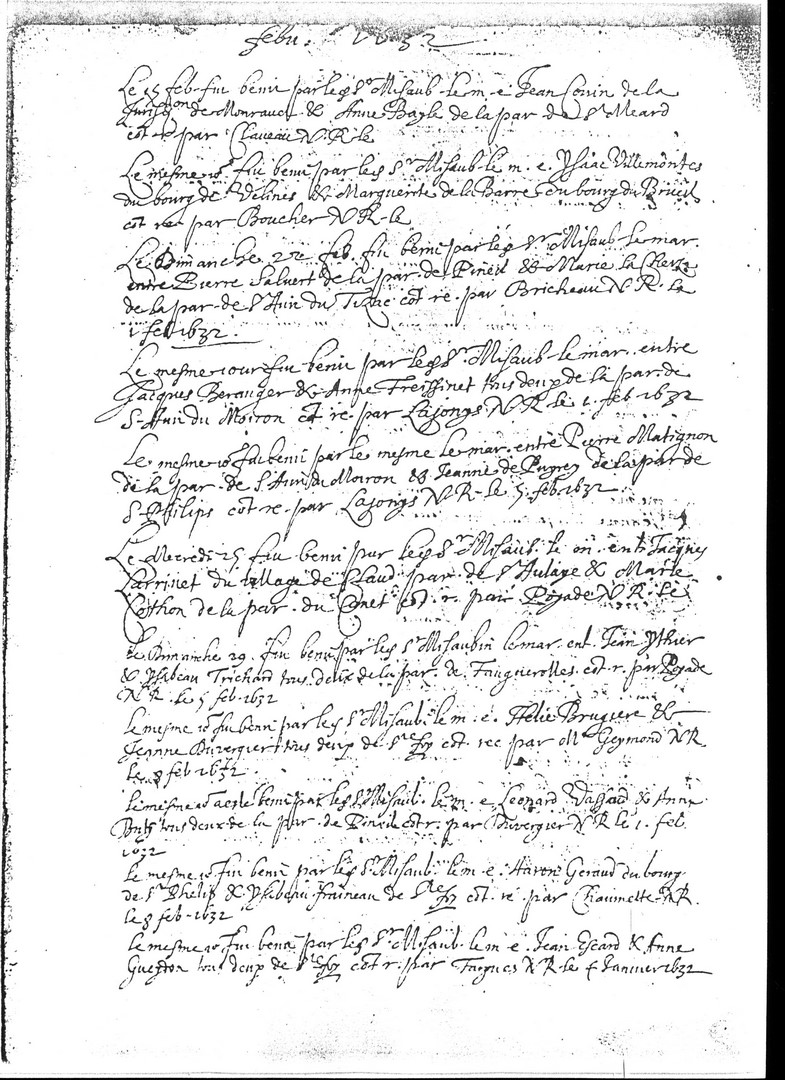 febu. 1632
Le 15 feb. fut beni par le s.r Misaub. le m. e. Jean Couin de la
Jurisd.on de Monrauel & Anne Bayle de la par. de S.t Meard
cot. re par Claueau N. R. le
Le mesme io.r fut beni par le s.r Misaub. le m. e. Ysaac Villemontes
du bourg de Velines & Marguerite de la Barre du bourg du Brueil
cot. re par Boucher N R. le
Le Dimanche 22 feb. fut beni par le s.r Misaub. le mar.
entre Pierre Saluert de la par. de Pineil & Marie la
de la par. de S. Auin du Tizac cot. re. par Bricheau N. R. le
1 feb 1632.
Le mesme iour fut beni par le s.r Misaub. le mar. entre
Jacques Beranger & Anne Freissinet tous deux de la par. de
S. Auin du Moiron cot. re. par Lajonys N. R. le 1. feb. 1632
Le mesme io.r fut beni par le mesme le mar. entre Pierre Matignon
de la par. de S. Auin du Moiron & Jeanne de Puyrey de la par. de
S. Philips cot. re. par Lajonys N. R. le 5. feb. 1632
Le Mecredi 25 fut beni par le s.r Misaub. le m. ent. Jacques
Larrinet du village de Claud par. de S.t Aulaye & Marie
Cothon de la par. du Canet cot. r. par Pojade N. R. le
Le Dimanche 29. fut beni par le s.r Misaubin le mar. ent. Jean Ythier
& Ysabeau Trichard tous deux de la par. de Fauguerolles cot. r. par Pojade
N. R. le 5 feb. 1632
Le mesme io.r fut beni par le s.r Misaub. le m. e. Helie Bruguere &
Jeanne Duvergier tous deux de S.te foy cot. rec par M.e Geymond N R.
le 8 feb 1632.
Le mesme io.r a esté beni par le s.r Misaub. le m. e. Leonard Vassad & Anne
tous deux de la par. de Pineil cot r. par Duvergier N R le 1. feb.
1632
Le mesme io.r fut beni par le s.r Misaub. le m. e. Haron Geraud du bourg
de S.t Phelip & Ysabeau fraineau de S.te foy cot. re. par Chaumette N R.
le 8 feb. 1632
Le mesme io.r fut beni par le s.r Misaub. le m. e. Jean Escard & Anne
Gueydon tous deux de S.te foy cot r. par Jacques N R. le Januier 1632